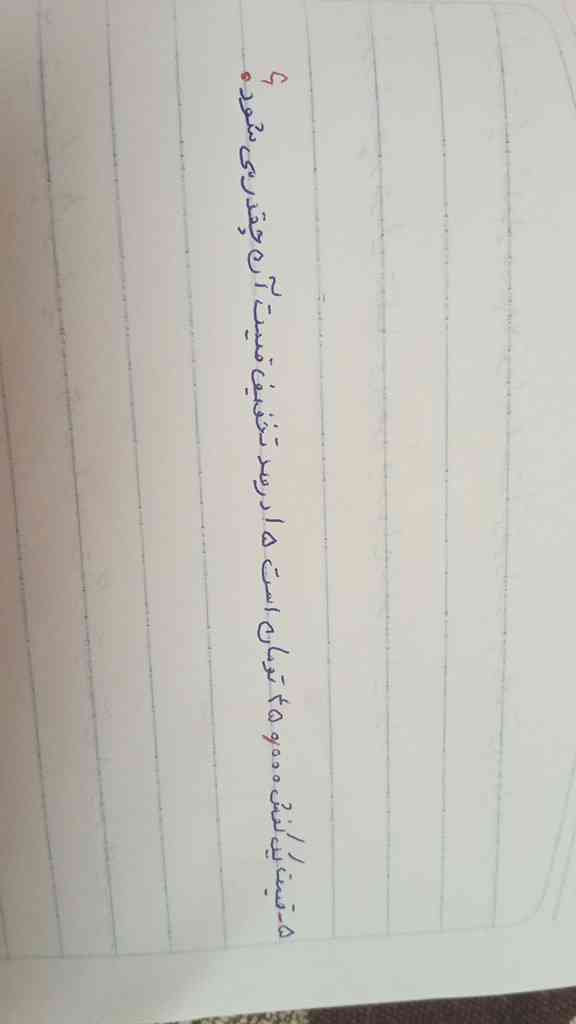 ۵- قیمت این کفش ۴۵۰۰۰۰ تومان است ۱۵ درصد تخفیف قیمت آن چقدر می شود؟